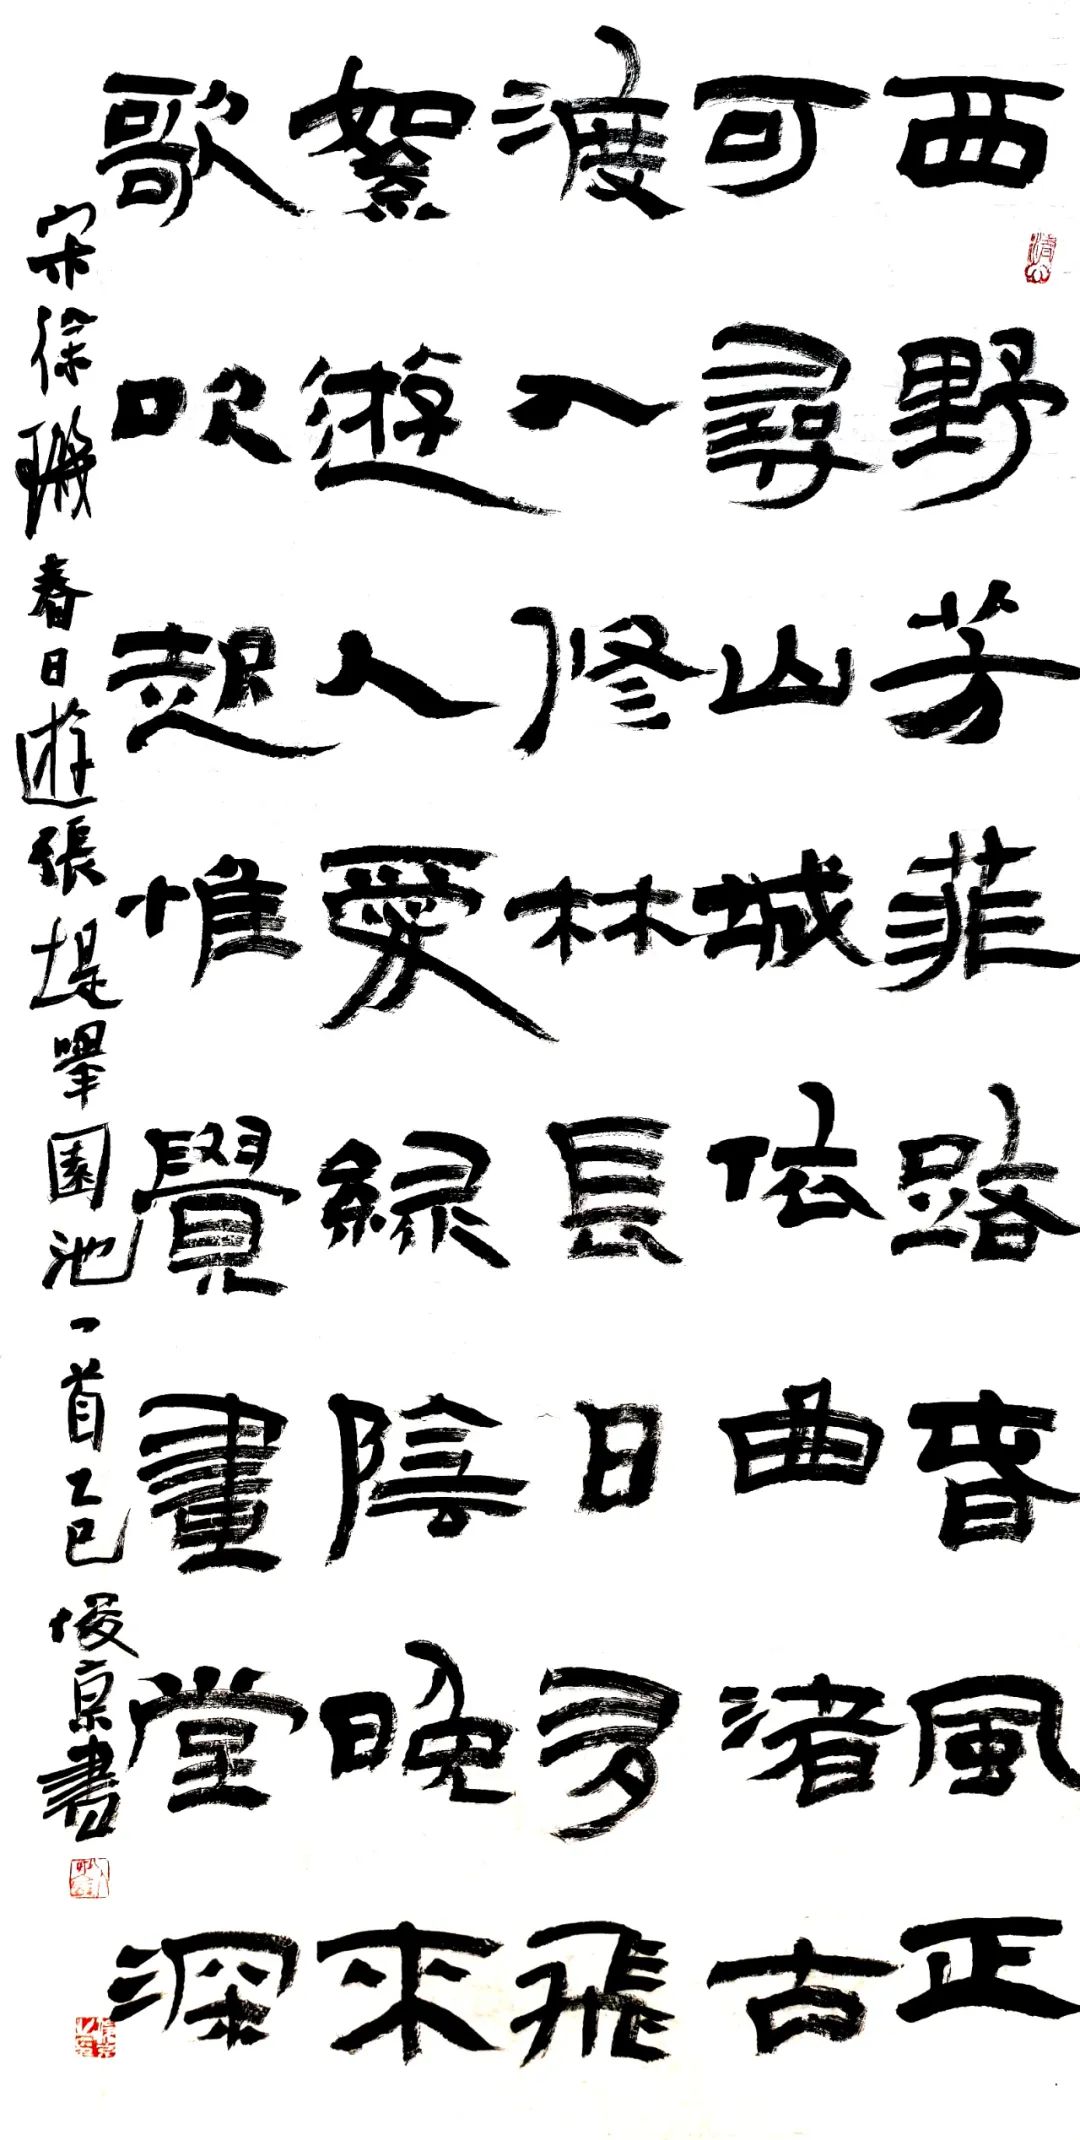 西野芳菲路春風正
可尋山城依曲渚古
渡入修林長日多飛
絮遊人愛綠陰晚來
歌吹起惟覺畫堂深
宋徐璣春日遊張提舉園池一首乙巳俊京書